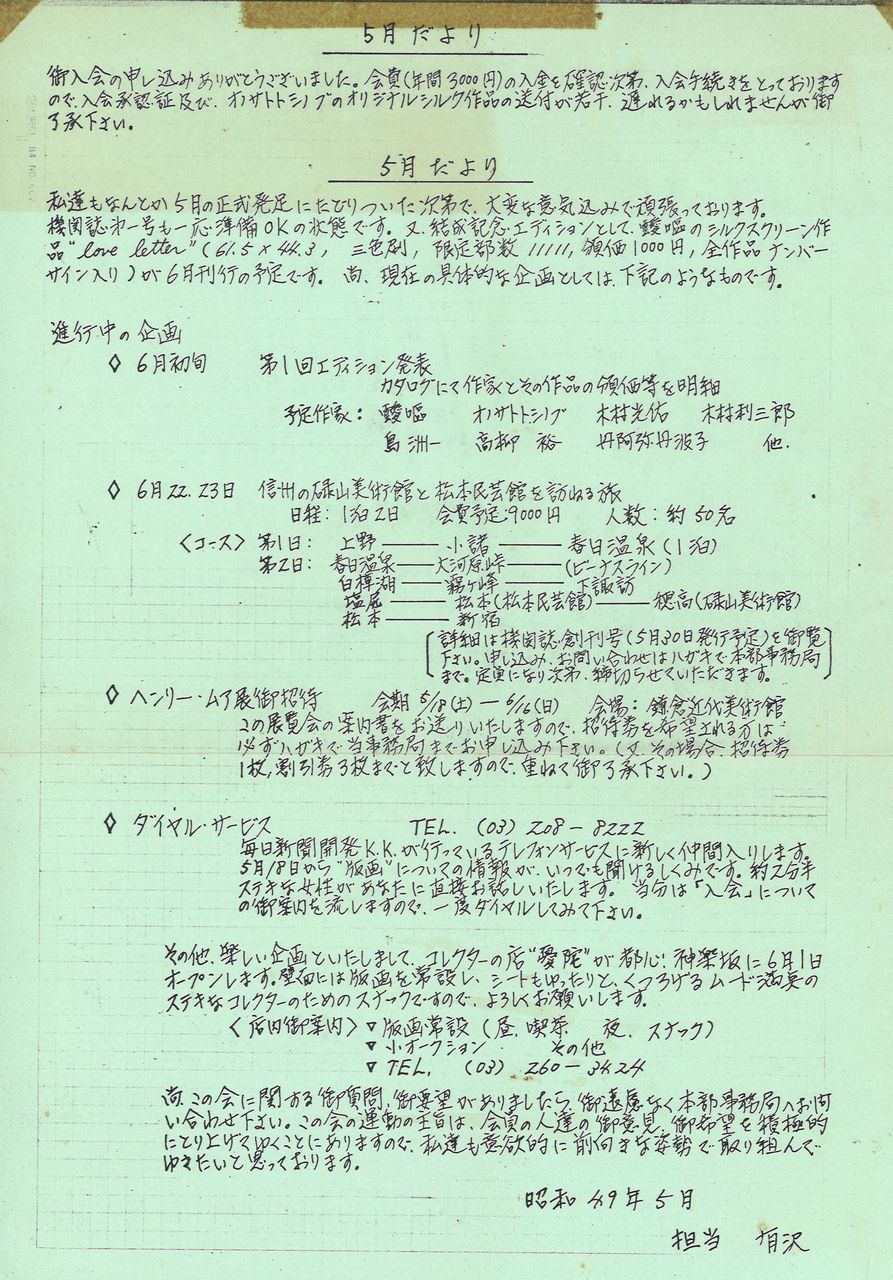 5月だより
御入会の申し込みありがとうございました。会費(年間3000円)の入金を確認次第、入会手続きをとっております
ので、入会承認証及び、オノサトトシノブのオリジナルシルク作品の送付が若干、遅れるかもしれませんが御
了承下さい。
5月だより
私達もなんとか5月の正式発足にたどりついた次第で、大変な意気込みで頑張っております。
機関誌㐧一号も一応準備OKの状態です。又、結成記念エディションとして、靉嘔のシルクスクリーン作
品"love letter"(61.5×44.3, 三色刷, 限定部数11111, 頒価1000円, 全作品ナンバー
サイン入り)が6月刊行の予定です。尚、現在の具体的な企画としては、下記のようなものです。
進行中の企画
◊ 6月初旬 第1回エディション発表
カタログにて作家とその作品の頒価等を明細
予定作家: 靉嘔 オノサトトシノブ 木村光佑 木村利三郎
島洲一 高柳裕 丹阿弥丹波子 他.
◊ 6月22.23日 信州の碌山美術館と松本民芸館を訪ねる旅
日程:1泊2日 会費予定:9000円 人数:約50名
〈コース〉第1日: 上野——小諸——春日温泉(1泊)
第2日: 春日温泉——大河原峠——(ビーナスライン)
白樺湖——霧ヶ峰——下諏訪
塩尻——松本(松本民芸館)——穂高(碌山美術館)
松本——新宿
[詳細は機関誌創刊号(5月30日発行予定)を御覧
下さい。申し込み、お問い合わせはハガキで本部事務局
まで。定員になり次第、締切らせていただきます。]
◊ ヘンリー・ムア展御招待 会期 5/18(土)—6/16(日) 会場: 鎌倉近代美術館
この展覧会の案内書をお送りいたしますので、招待券を希望される方は
必ずハガキで当事務局までお申し込み下さい。(又、その場合、招待券
1枚,割引券3枚までと致しますので、重ねて御了承下さい。)
◊ ダイヤル・サービス TEL. (03) 208-8222
毎日新聞開発K.K.が行っているテレフォンサービスに新しく仲間入りします。
5月18日から"版画"についての情報が、いつでも聞けるしくみです。約2分半
ステキな女性があなたに直接お話しいたします。当分は「入会」について
の御案内を流しますので、一度ダイヤルしてみて下さい。
その他、楽しい企画といたしまして、コレクターの店"憂陀"が都心!神楽坂に6月1日
オープンします。壁面には版画を常設し、シートもゆったりと、くつろげるムード満点の
ステキなコレクターのためのスナックですので、よろしくお願いします。
〈店内御案内〉▽版画常設(昼、喫茶 夜、スナック)
▽小オークション その他
▽TEL. (03) 260-3424
尚、この会に関する御質問、御要望がありましたら、御遠慮なく本部事務局へお問
い合わせ下さい。この会の運動の主旨は、会員の人達の御意見、御希望を積極的
にとり上げてゆくことにありますので、私達も意欲的に前向きな姿勢で取り組んで
ゆきたいと思っております。
昭和49年5月
担当 有沢